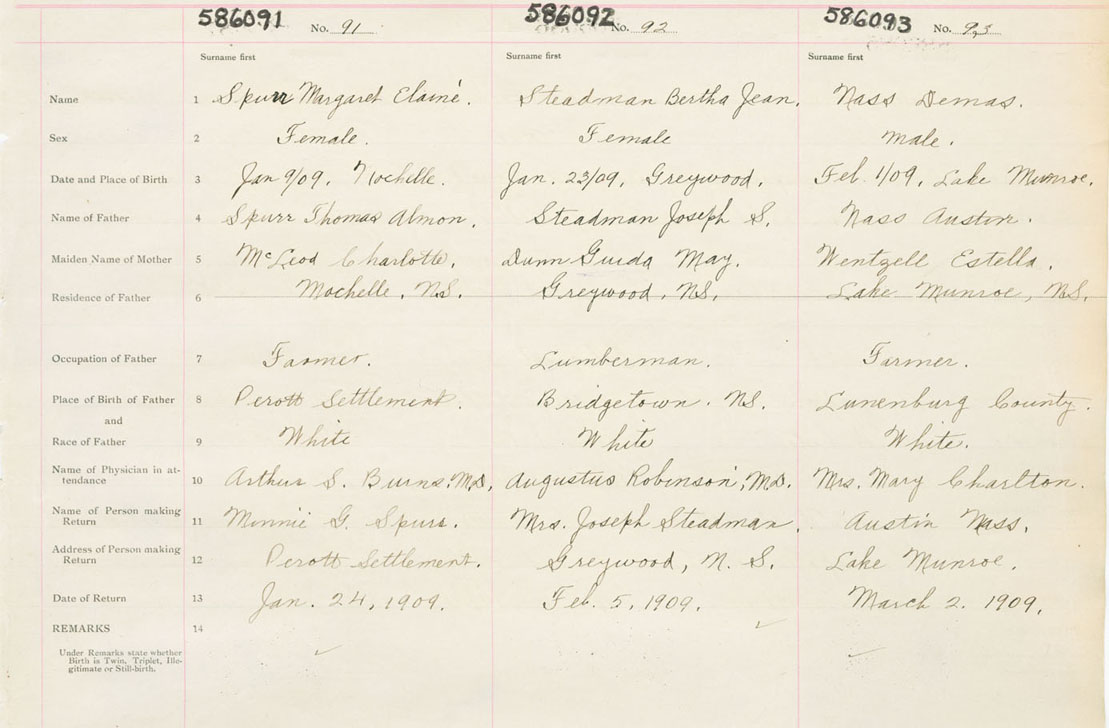 586091 No. 91 586092 No. 92 586093 No. 93
Surname first Surname first Surname first
Name 1 Spurr Margaret Elaine. Steadman Bertha Jean. Nass Demas.
Sex 2 Female. Female Male.
Date and Place of Birth 3 Jan 9/09. Mochelle. Jan. 23/09. Greywood. Feb. 1/09, Lake Munroe.
Name of Father 4 Spurr Thomas Almon. Steadman Joseph S. Nass Austin.
Maiden Name of Mother 5 McLeod Charlotte. Dunn Guida May. Wentzell Estella.
Residence of Father 6 Mochelle, N.S. Greywood, N.S. Lake Munroe, N.S.
Occupation of Father 7 Farmer. Lumberman. Farmer.
Place of Birth of Father 8 Perott Settlement. Bridgetown. N.S. Lunenburg County.
and
Race of Father 9 White White White.
Name of Physician in at-
tendance 10 Arthur S. Burns, M.D. Augustus Robinson, M.D. Mrs. Mary Charlton.
Name of Person making
Return 11 Minnie G. Spurr. Mrs. Joseph Steadman. Austin Nass.
Address of Person making
Return 12 Perott Settlement. Greywood, N. S. Lake Munroe.
Date of Return 13 Jan. 24, 1909. Feb. 5, 1909. March 2. 1909.
REMARKS 14
Under Remarks state whether
Birth is Twin, Triplet, Ille-
gitimate or Still-birth.